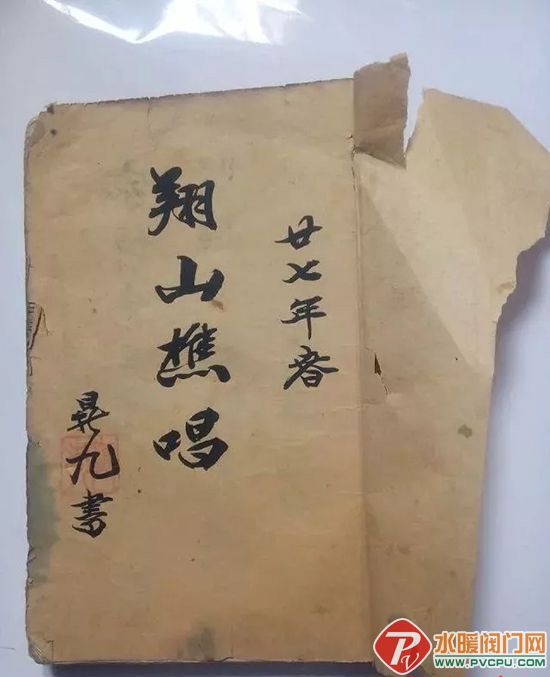 廿七年春
翔山樵唱
晃九書
水暖阀门网
WWW.PVCPU.COM